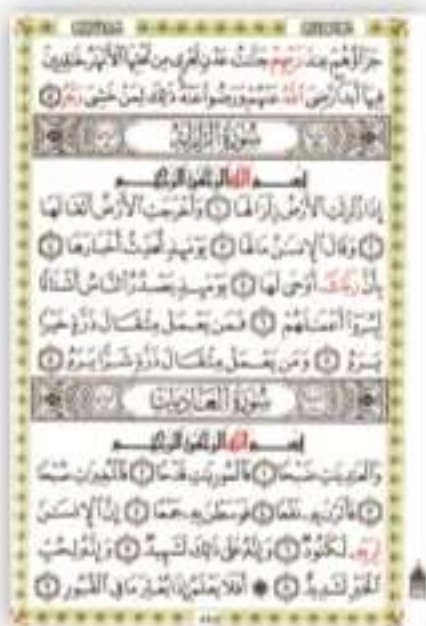 جَزَآؤُهُمْ عِندَ رَبِّهِمْ جَنَّٰتُ عَدْنٍ تَجْرِى مِن تَحْتِهَا ٱلْأَنْهَٰرُ خَٰلِدِينَ
فِيهَآ أَبَدًا رَّضِىَ ٱللَّهُ عَنْهُمْ وَرَضُوا۟ عَنْهُ ذَٰلِكَ لِمَنْ خَشِىَ رَبَّهُۥ ٨
سُورَةُ الزَّلْزَلَةِ
بِسْمِ ٱللَّهِ ٱلرَّحْمَٰنِ ٱلرَّحِيمِ
إِذَا زُلْزِلَتِ ٱلْأَرْضُ زِلْزَالَهَا ١ وَأَخْرَجَتِ ٱلْأَرْضُ أَثْقَالَهَا
٢ وَقَالَ ٱلْإِنسَٰنُ مَا لَهَا ٣ يَوْمَئِذٍ تُحَدِّثُ أَخْبَارَهَا ٤
بِأَنَّ رَبَّكَ أَوْحَىٰ لَهَا ٥ يَوْمَئِذٍ يَصْدُرُ ٱلنَّاسُ أَشْتَاتًا
لِّيُرَوْا۟ أَعْمَٰلَهُمْ ٦ فَمَن يَعْمَلْ مِثْقَالَ ذَرَّةٍ خَيْرًا
يَرَهُۥ ٧ وَمَن يَعْمَلْ مِثْقَالَ ذَرَّةٍ شَرًّا يَرَهُۥ ٨
سُورَةُ العَادِيَاتِ
بِسْمِ ٱللَّهِ ٱلرَّحْمَٰنِ ٱلرَّحِيمِ
وَٱلْعَٰدِيَٰتِ ضَبْحًا ١ فَٱلْمُورِيَٰتِ قَدْحًا ٢ فَٱلْمُغِيرَٰتِ صُبْحًا
٣ فَأَثَرْنَ بِهِۦ نَقْعًا ٤ فَوَسَطْنَ بِهِۦ جَمْعًا ٥ إِنَّ ٱلْإِنسَٰنَ
لِرَبِّهِۦ لَكَنُودٌ ٦ وَإِنَّهُۥ عَلَىٰ ذَٰلِكَ لَشَهِيدٌ ٧ وَإِنَّهُۥ لِحُبِّ
ٱلْخَيْرِ لَشَدِيدٌ ٨ ۞ أَفَلَا يَعْلَمُ إِذَا بُعْثِرَ مَا فِى ٱلْقُبُورِ ٩